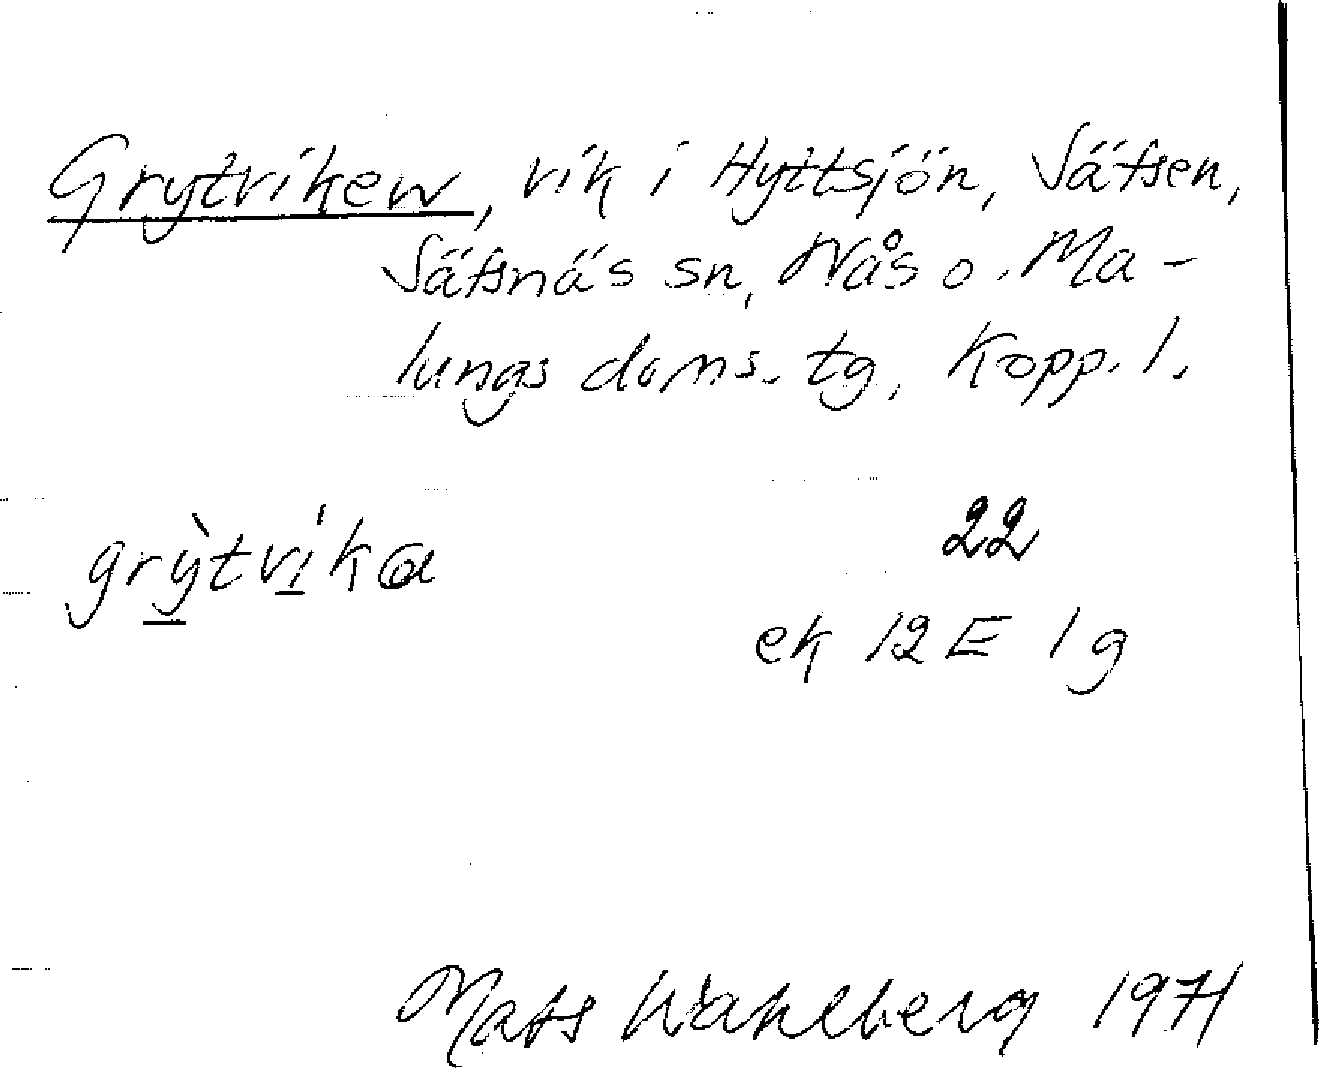 Grytviken, vik i Hyttsjön, Säfsen,
Säfsnäs sn, Nås o. Ma-
lungs doms. tg, Kopp. l.
22
ek 12 E 1 g
Mats Wahlberg 1971